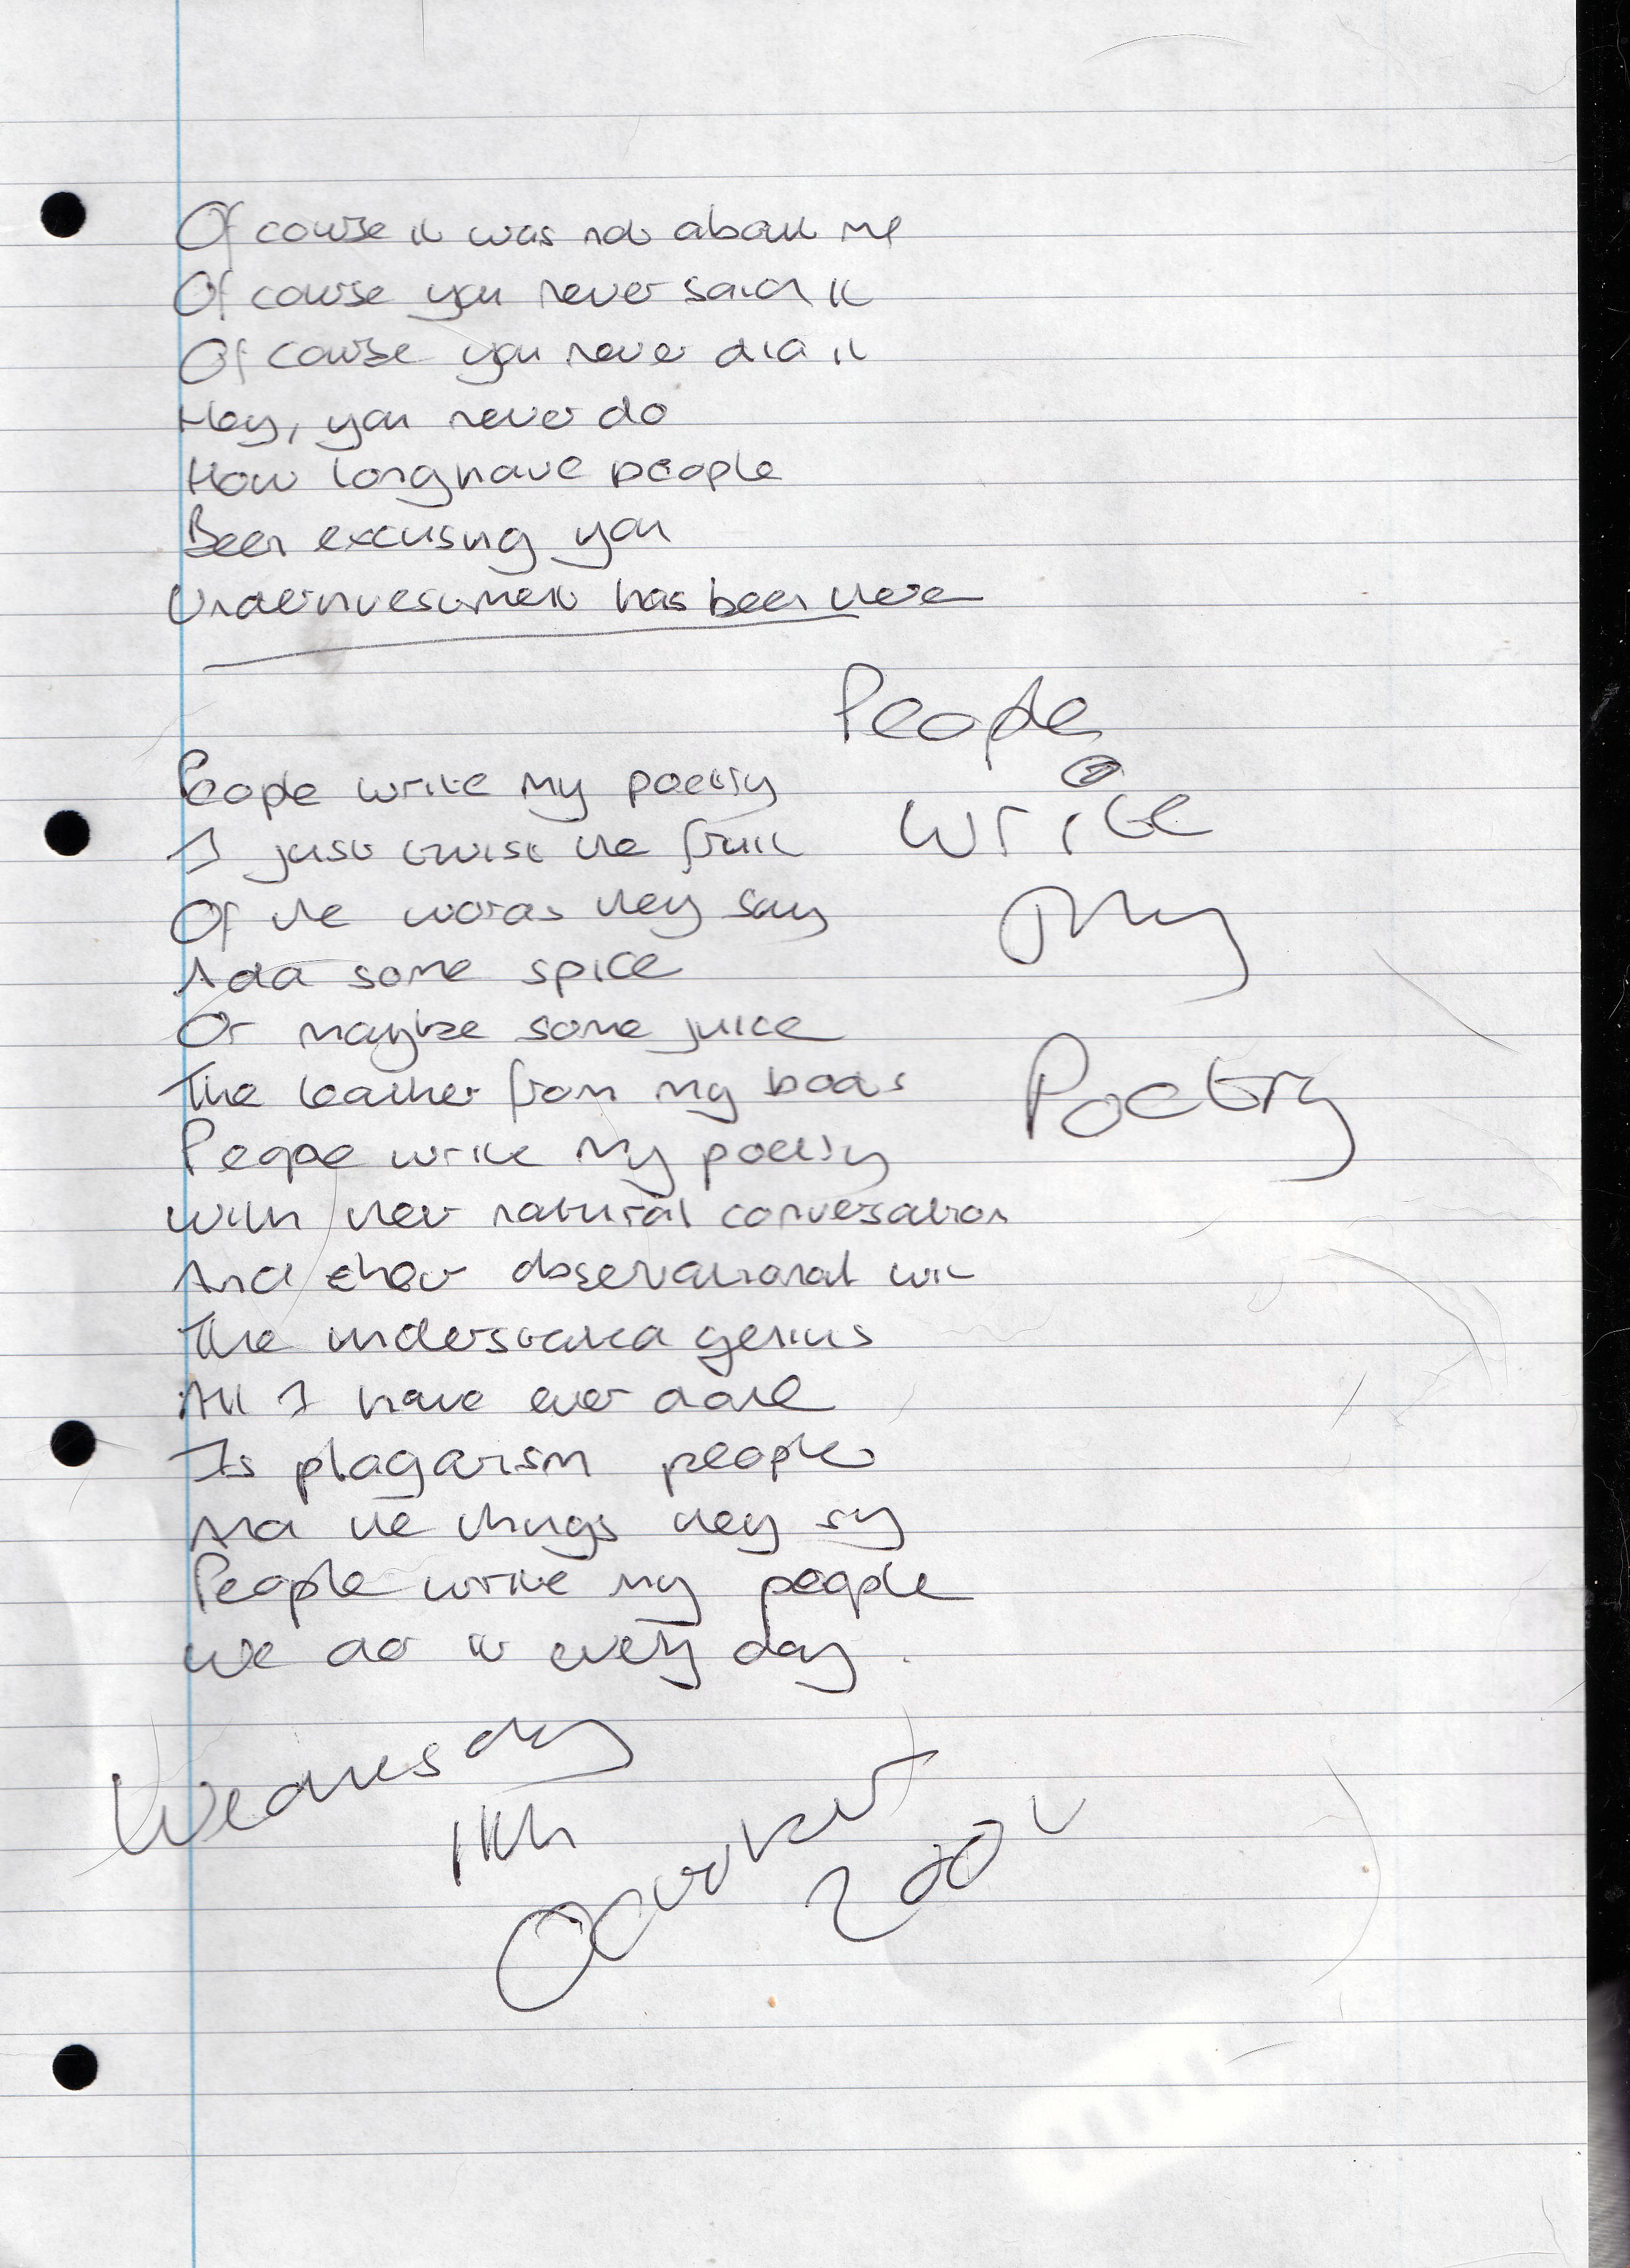 Of course it was not about me
Of course you never said it
Of course you never did it
Hey, you never do
How long have people
Been excusing you
Underinvestment has been here
People
Write
My
Poetry
People write my poetry
I just twist the fruit
Of the words they say
Add some spice
Or maybe some juice
The leather from my boots
People write my poetry
With their natural conversation
And their observational wit
The understated genius
All I have ever done
Is plagarism people
And the things they sy
People write my people
We do it every day.
Wednesday
11th
October
200